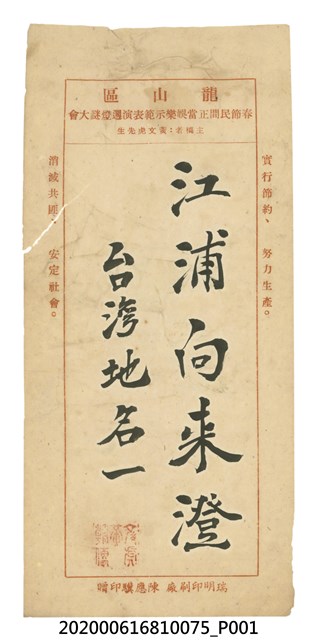 龍山區
春節民間正當娛樂示範表演週燈謎大會
主稿者：黃文虎先生
實行節約、 努力生產。
江浦向來澄
台灣地名一
消滅共匪、 安定社會。
瑞明印刷廠 陳應驥印贈
202000616810075_P001